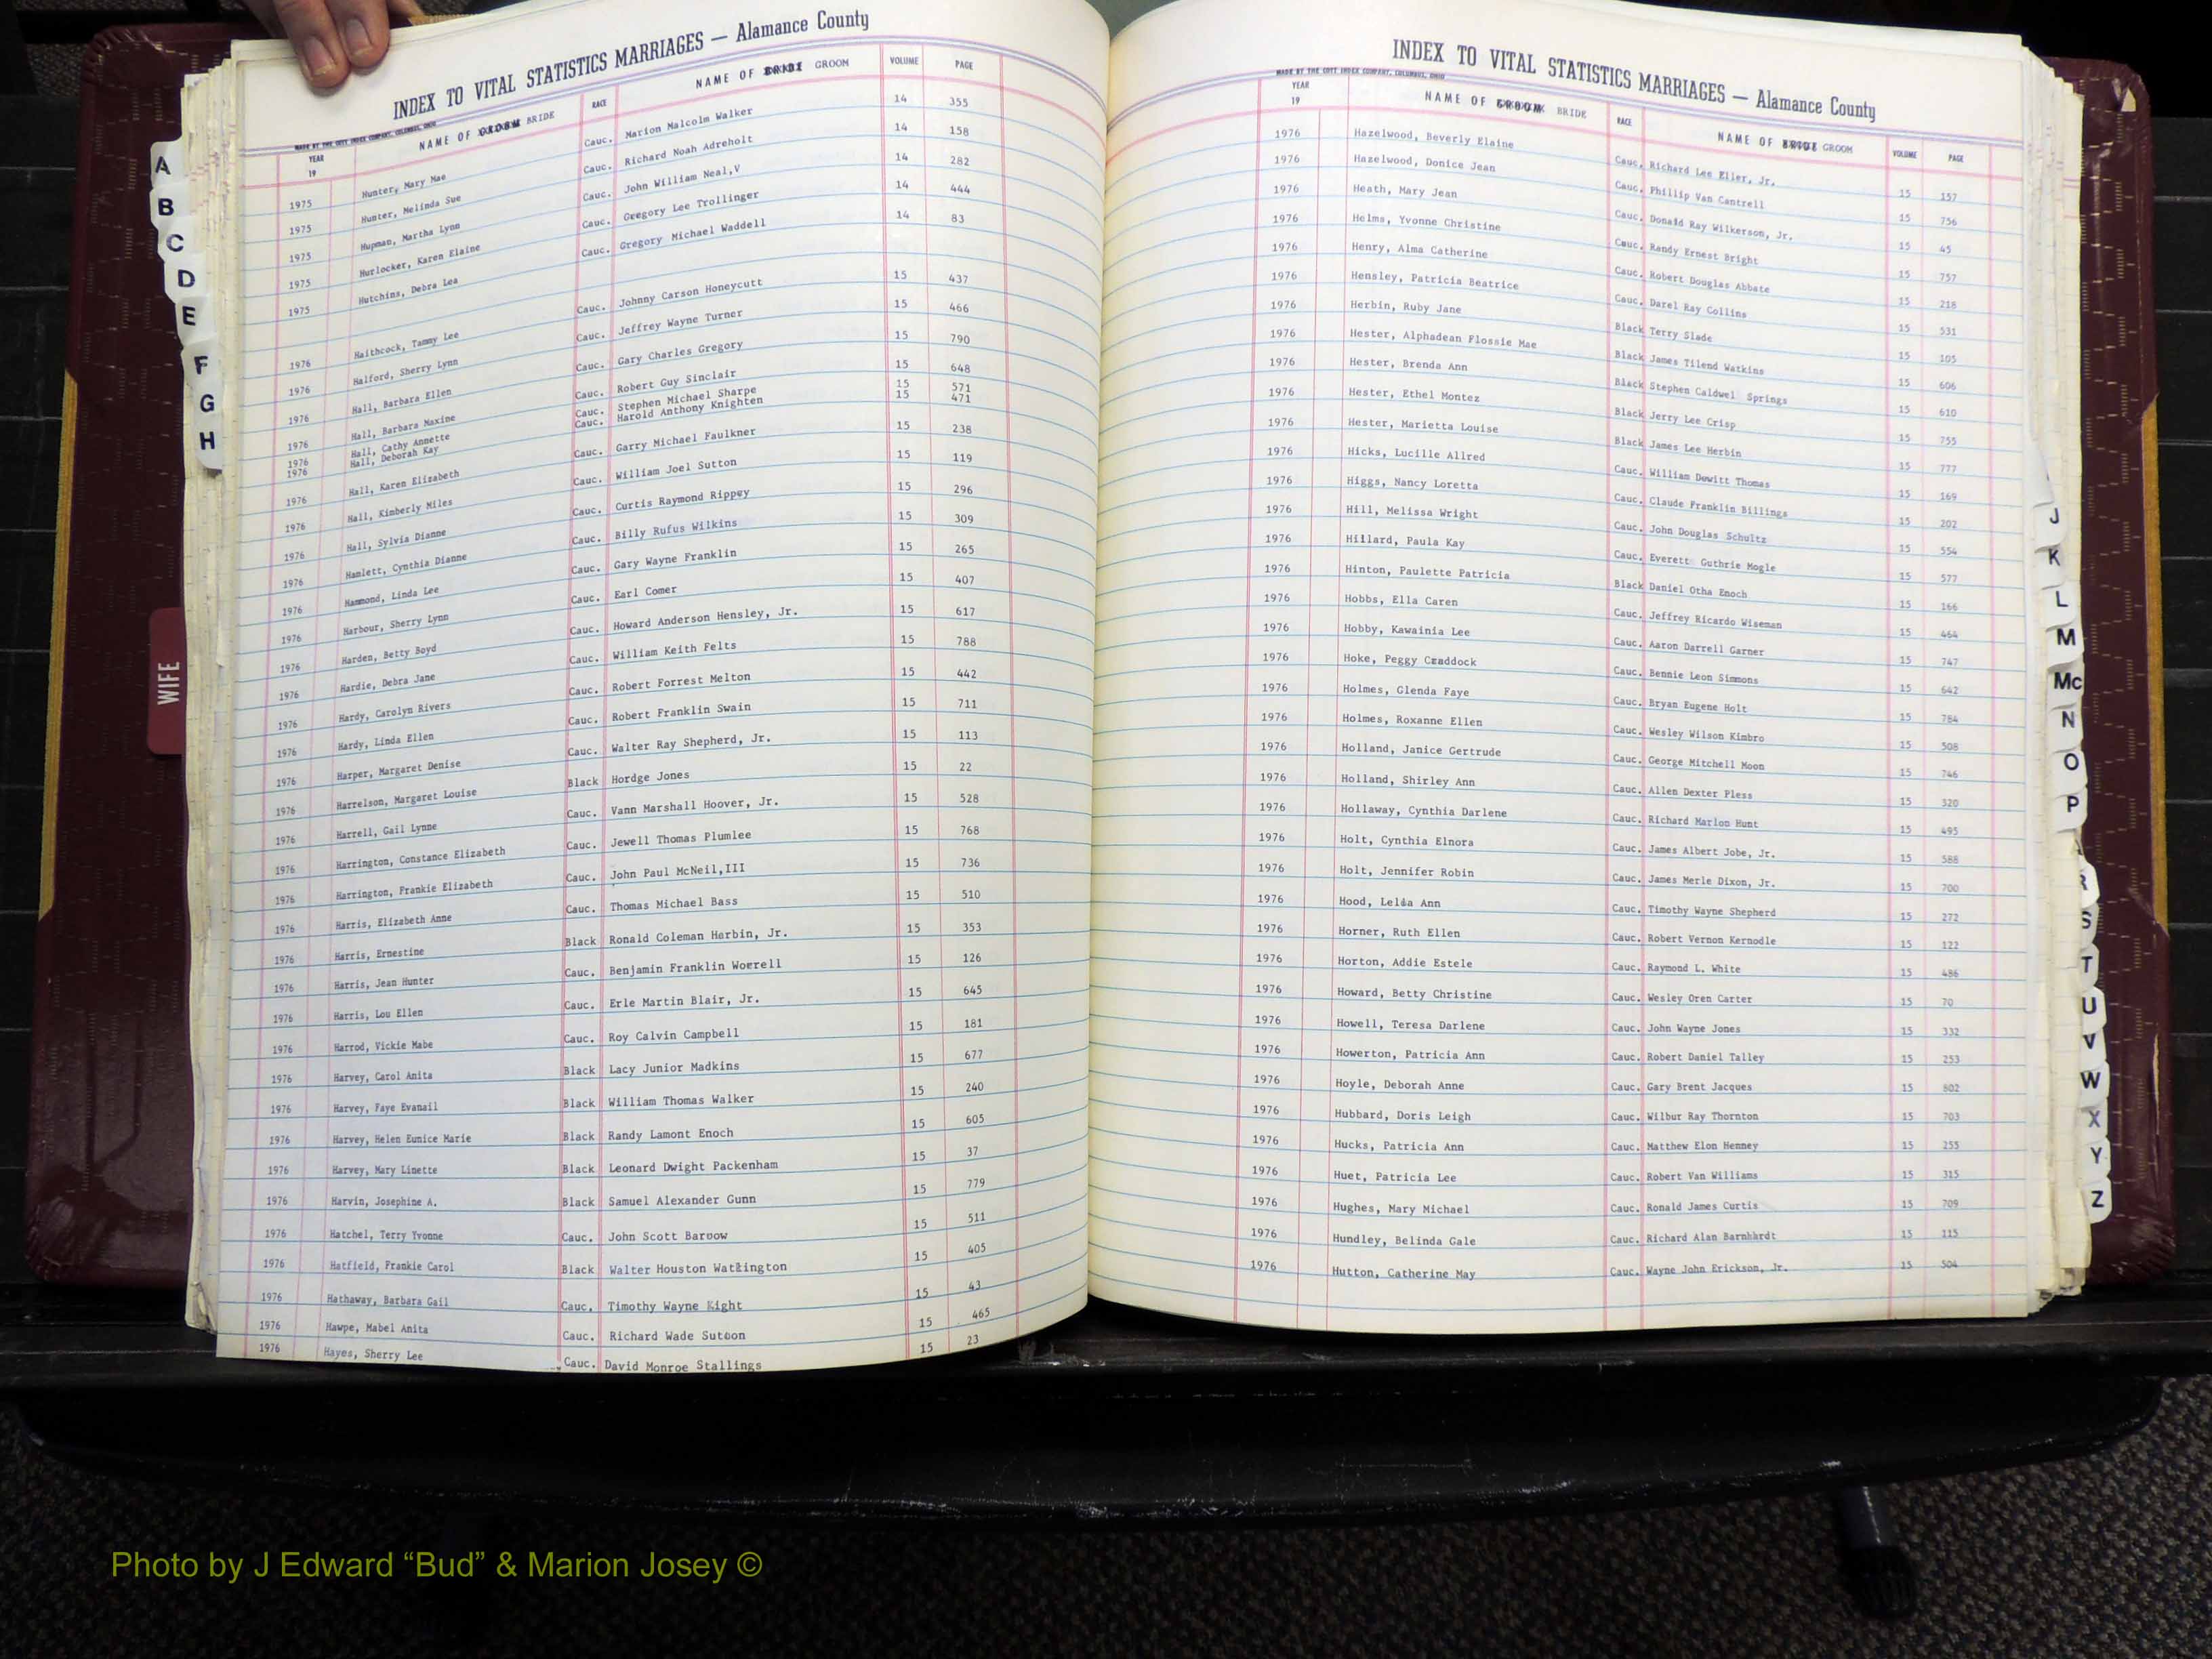 INDEX TO VITAL STATISTICS MARRIAGES — Alamance County
MADE BY THE COTT INDEX COMPANY, COLUMBUS, OHIO
YEAR 19 NAME OF GROOM BRIDE RACE NAME OF BRIDE GROOM VOLUME PAGE
1975 Hunter, Mary Mae Cauc. Marion Malcolm Walker 14 355
1975 Hunter, Melinda Sue Cauc. Richard Noah Adreholt 14 158
1975 Hupman, Martha Lynn Cauc. John William Neal,V 14 282
1975 Hurlocker, Karen Elaine Cauc. Gregory Lee Trollinger 14 444
1975 Hutchins, Debra Lea Cauc. Gregory Michael Waddell 14 83
1976 Haithcock, Tammy Lee Cauc. Johnny Carson Honeycutt 15 437
1976 Halford, Sherry Lynn Cauc. Jeffrey Wayne Turner 15 466
1976 Hall, Barbara Ellen Cauc. Gary Charles Gregory 15 790
1976 Hall, Barbara Maxine Cauc. Robert Guy Sinclair 15 648
1976 Hall, Cathy Annette Cauc. Stephen Michael Sharpe 15 571
1976 Hall, Deborah Kay Cauc. Harold Anthony Knighten 15 471
1976 Hall, Karen Elizabeth Cauc. Garry Michael Faulkner 15 238
1976 Hall, Kimberly Miles Cauc. William Joel Sutton 15 119
1976 Hall, Sylvia Dianne Cauc. Curtis Raymond Rippey 15 296
1976 Hamlett, Cynthia Dianne Cauc. Billy Rufus Wilkins 15 309
1976 Hammond, Linda Lee Cauc. Gary Wayne Franklin 15 265
1976 Harbour, Sherry Lynn Cauc. Earl Comer 15 407
1976 Harden, Betty Boyd Cauc. Howard Anderson Hensley, Jr. 15 617
1976 Hardie, Debra Jane Cauc. William Keith Felts 15 788
1976 Hardy, Carolyn Rivers Cauc. Robert Forrest Melton 15 442
1976 Hardy, Linda Ellen Cauc. Robert Franklin Swain 15 711
1976 Harper, Margaret Denise Cauc. Walter Ray Shepherd, Jr. 15 113
1976 Harrelson, Margaret Louise Black Hordge Jones 15 22
1976 Harrell, Gail Lynne Cauc. Vann Marshall Hoover, Jr. 15 528
1976 Harrington, Constance Elizabeth Cauc. Jewell Thomas Plumlee 15 768
1976 Harrington, Frankie Elizabeth Cauc. John Paul McNeil,III 15 736
1976 Harris, Elizabeth Anne Cauc. Thomas Michael Bass 15 510
1976 Harris, Ernestine Black Ronald Coleman Herbin, Jr. 15 353
1976 Harris, Jean Hunter Cauc. Benjamin Franklin Worrell 15 126
1976 Harris, Lou Ellen Cauc. Erle Martin Blair, Jr. 15 645
1976 Harrod, Vickie Mabe Cauc. Roy Calvin Campbell 15 181
1976 Harvey, Carol Anita Black Lacy Junior Madkins 15 677
1976 Harvey, Faye Evanail Black William Thomas Walker 15 240
1976 Harvey, Helen Eunice Marie Black Randy Lamont Enoch 15 605
1976 Harvey, Mary Linette Black Leonard Dwight Packenham 15 37
1976 Harvin, Josephine A. Black Samuel Alexander Gunn 15 779
1976 Hatchel, Terry Yvonne Cauc. John Scott Barrow 15 511
1976 Hatfield, Frankie Carol Black Walter Houston Watlington 15 405
1976 Hathaway, Barbara Gail Cauc. Timothy Wayne Kight 15 43
1976 Hawpe, Mabel Anita Cauc. Richard Wade Sutton 15 465
1976 Hayes, Sherry Lee Cauc. David Monroe Stallings 15 23
A
B
C
D
E
F
G
H
WIFE
INDEX TO VITAL STATISTICS MARRIAGES — Alamance County
MADE BY THE COTT INDEX COMPANY, COLUMBUS, OHIO
YEAR 19 NAME OF GROOM BRIDE RACE NAME OF BRIDE GROOM VOLUME PAGE
1976 Hazelwood, Beverly Elaine Cauc. Richard Lee Eller, Jr. 15 157
1976 Hazelwood, Donice Jean Cauc. Phillip Van Cantrell 15 756
1976 Heath, Mary Jean Cauc. Donald Ray Wilkerson, Jr. 15 45
1976 Helms, Yvonne Christine Cauc. Randy Ernest Bright 15 757
1976 Henry, Alma Catherine Cauc. Robert Douglas Abbate 15 218
1976 Hensley, Patricia Beatrice Cauc. Darel Ray Collins 15 531
1976 Herbin, Ruby Jane Black Terry Slade 15 105
1976 Hester, Alphadean Flossie Mae Black James Tilend Watkins 15 606
1976 Hester, Brenda Ann Black Stephen Caldwel Springs 15 610
1976 Hester, Ethel Montez Black Jerry Lee Crisp 15 755
1976 Hester, Marietta Louise Black James Lee Herbin 15 777
1976 Hicks, Lucille Allred Cauc. William Dewitt Thomas 15 169
1976 Higgs, Nancy Loretta Cauc. Claude Franklin Billings 15 202
1976 Hill, Melissa Wright Cauc. John Douglas Schultz 15 554
1976 Hillard, Paula Kay Cauc. Everett Guthrie Mogle 15 577
1976 Hinton, Paulette Patricia Black Daniel Otha Enoch 15 166
1976 Hobbs, Ella Caren Cauc. Jeffrey Ricardo Wiseman 15 464
1976 Hobby, Kawainia Lee Cauc. Aaron Darrell Garner 15 747
1976 Hoke, Peggy Craddock Cauc. Bennie Leon Simmons 15 642
1976 Holmes, Glenda Faye Cauc. Bryan Eugene Holt 15 784
1976 Holmes, Roxanne Ellen Cauc. Wesley Wilson Kimbro 15 508
1976 Holland, Janice Gertrude Cauc. George Mitchell Moon 15 746
1976 Holland, Shirley Ann Cauc. Allen Dexter Pless 15 320
1976 Hollaway, Cynthia Darlene Cauc. Richard Marlon Hunt 15 495
1976 Holt, Cynthia Elnora Cauc. James Albert Jobe, Jr. 15 588
1976 Holt, Jennifer Robin Cauc. James Merle Dixon, Jr. 15 700
1976 Hood, Lelia Ann Cauc. Timothy Wayne Shepherd 15 272
1976 Horner, Ruth Ellen Cauc. Robert Vernon Kernodle 15 122
1976 Horton, Addie Estele Cauc. Raymond L. White 15 486
1976 Howard, Betty Christine Cauc. Wesley Oren Carter 15 70
1976 Howell, Teresa Darlene Cauc. John Wayne Jones 15 332
1976 Howerton, Patricia Ann Cauc. Robert Daniel Talley 15 253
1976 Hoyle, Deborah Anne Cauc. Gary Brent Jacques 15 802
1976 Hubbard, Doris Leigh Cauc. Wilbur Ray Thornton 15 703
1976 Hucks, Patricia Ann Cauc. Matthew Elon Henney 15 255
1976 Huet, Patricia Lee Cauc. Robert Van Williams 15 315
1976 Hughes, Mary Michael Cauc. Ronald James Curtis 15 709
1976 Hundley, Belinda Gale Cauc. Richard Alan Barnhardt 15 115
1976 Hutton, Catherine May Cauc. Wayne John Erickson, Jr. 15 504
J
K
L
M
Mc
N
O
P
R
S
T
U
V
W
X
Y
Z
Photo by J Edward “Bud” & Marion Josey ©